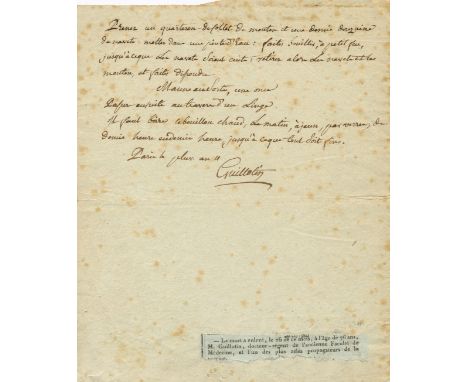 Prenez un quarteron de collet de mouton et une demie douzaine
de navets. mettez dans une pinte d'eau : faites bouillir, à petit feu,
jusqu'à ce que les navets soient cuits : retirez alors les navets et le
mouton, et faites dissoudre
Manne en sorte, une once
Passez ensuite au travers d'un Linge
Il faut boire ce bouillon chaud, le matin, à jeun, par verres, de
demie heure en demie heure, jusqu'à ce que tout soit pris.
Paris le pluv. an 11
Guillotin
— La mort a enlevé, le 26 de ce mois, à l'âge de 76 ans,
M. Guillotin, docteur-régent de l'ancienne Faculté de
Médecine, et l'un des plus zélés propagateurs de la